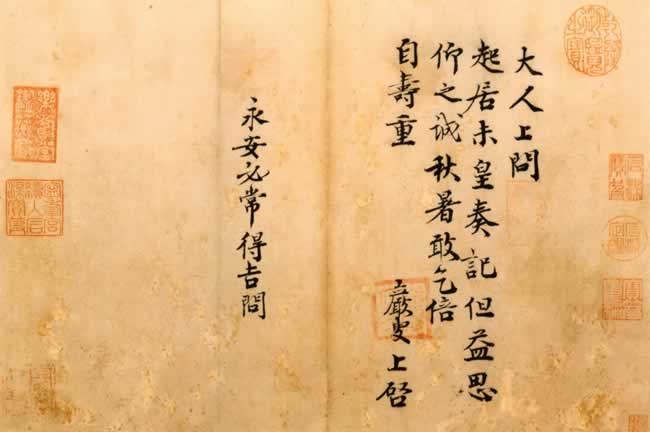 大人上問
起居未皇奏記但益思
仰之誠秋暑敢乞倍
自壽重
巖叟上啓
永安必常得吉問